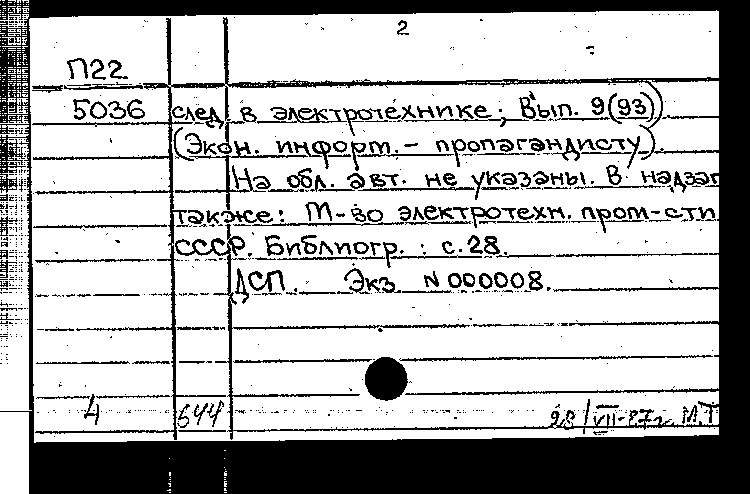 2
П22
5036 след. в электротехнике; Вып. 9(93))
(Экон. информ. - пропагандисту).
На обл. авт. не указаны. В надзаг
также: М-во электротехн. пром-сти
СССР. Библиогр.: с.28.
ДСП. Экз N 000008.
4 644 28/VII-87г. М.Т